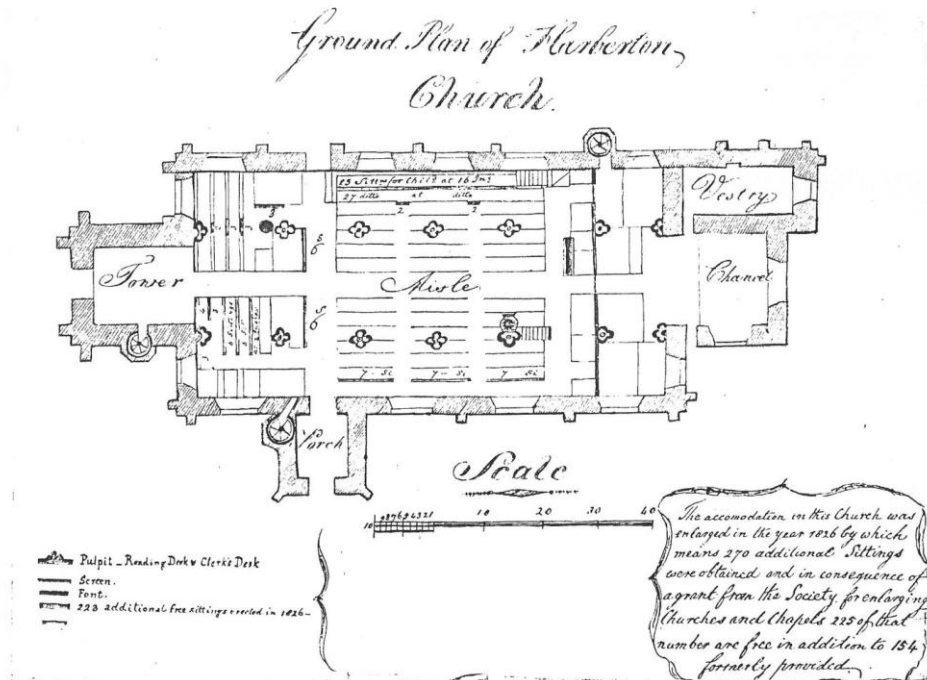 Ground Plan of Harberton
Church.
15 Sittgs for Child at 16 Ins
27 ditto at ditto
2 2
3
Vestry
Tower
Aisle
Chancel
7 - Si 7 - Si 7 Si
Porch
Scale
10 9 8 7 6 5 4 3 2 1 10 20 30 40
Pulpit _ Reading Desk & Clerks Desk
Screen.
Font.
223 additional free sittings erected in 1826 -
The accomodation in this Church was
enlarged in the year 1826 by which
means 270 additional Sittings
were obtained and in consequence of
a grant from the Society for enlarging
Churches and Chapels 225 of that
number are free in addition to 154
formerly provided.